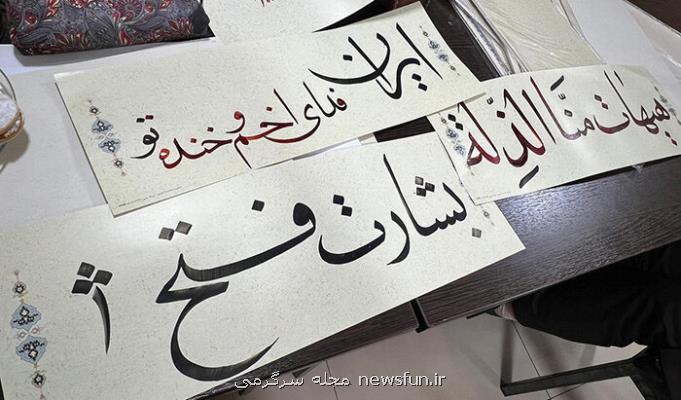 ایران
فدای اخم و خنده تو
هیهات منّا الذلّة
بشارت فتح
مجله سرگرمی newsfun.ir